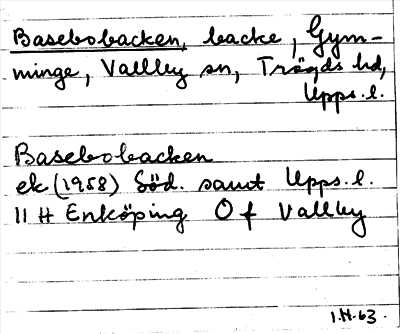 Basebobacken, backe, Gym-
minge, Vallby sn, Trögds hd,
Upps. l.
Basebobacken
ek (1958) Söd. samt Upps. l.
11 H Enköping O f Vallby
I.H-63.